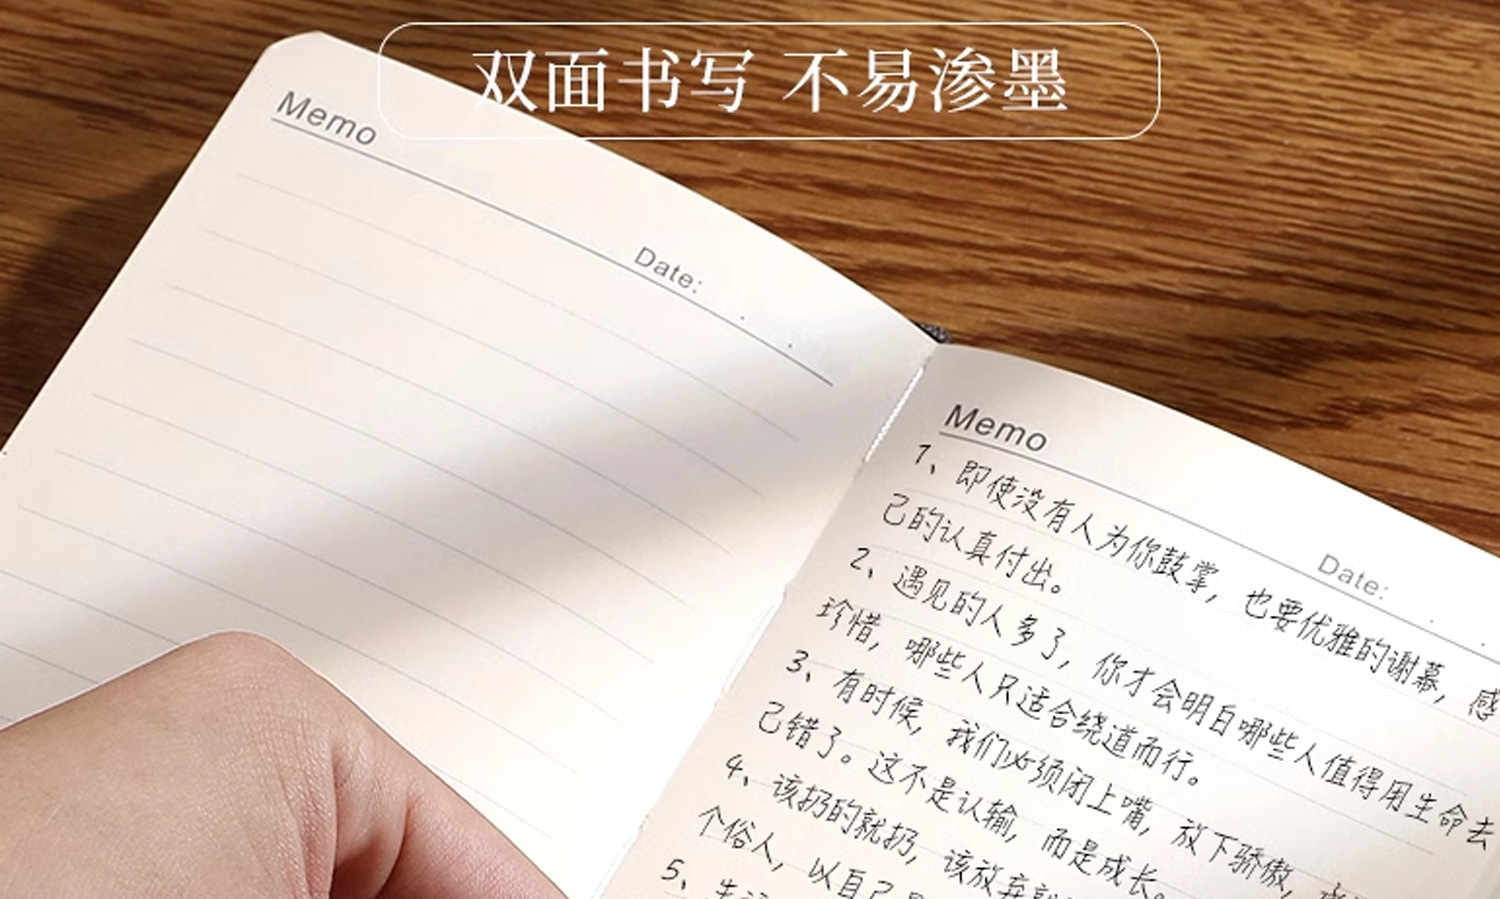 双面书写 不易渗墨
Memo
Date:
Memo
Date:
1、即使没有人为你鼓掌，也要优雅的谢幕，感
己的认真付出。
2、遇见的人多了，你才会明白哪些人值得用生命去
珍惜，哪些人只适合绕道而行。
3、有时候，我们必须闭上嘴，放下骄傲，
己错了。这不是认输，而是成长。
4、该扔的就扔，该放弃
个俗人，以自己
5、生活